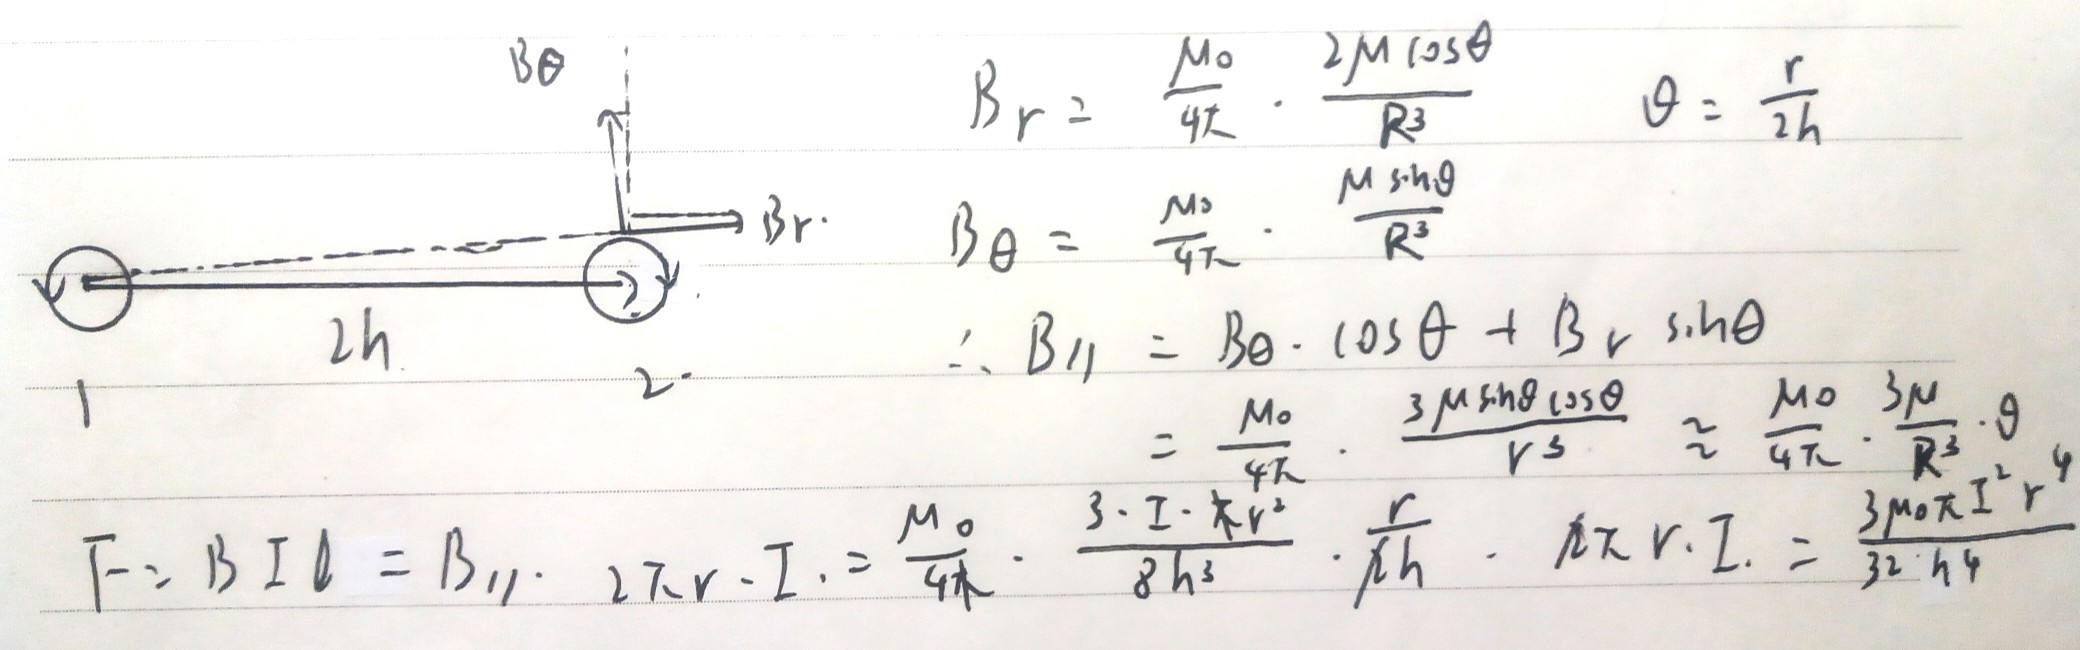 Bθ
Br.
2h
1
2
Br = μ0/4π · 2μ cosθ/R³    θ = r/2h
Bθ = μ0/4π · μ sinθ/R³
∴ B∥ = Bθ · cosθ + Br sinθ
= μ0/4π · 3μ sinθ cosθ/r³ ≈ μ0/4π · 3μ/R³ · θ
F = BIl = B∥ · 2πr · I. = μ0/4π · 3·I·πr²/8h³ · r/2h · 2πr·I. = 3μ0πI²r⁴/32h⁴